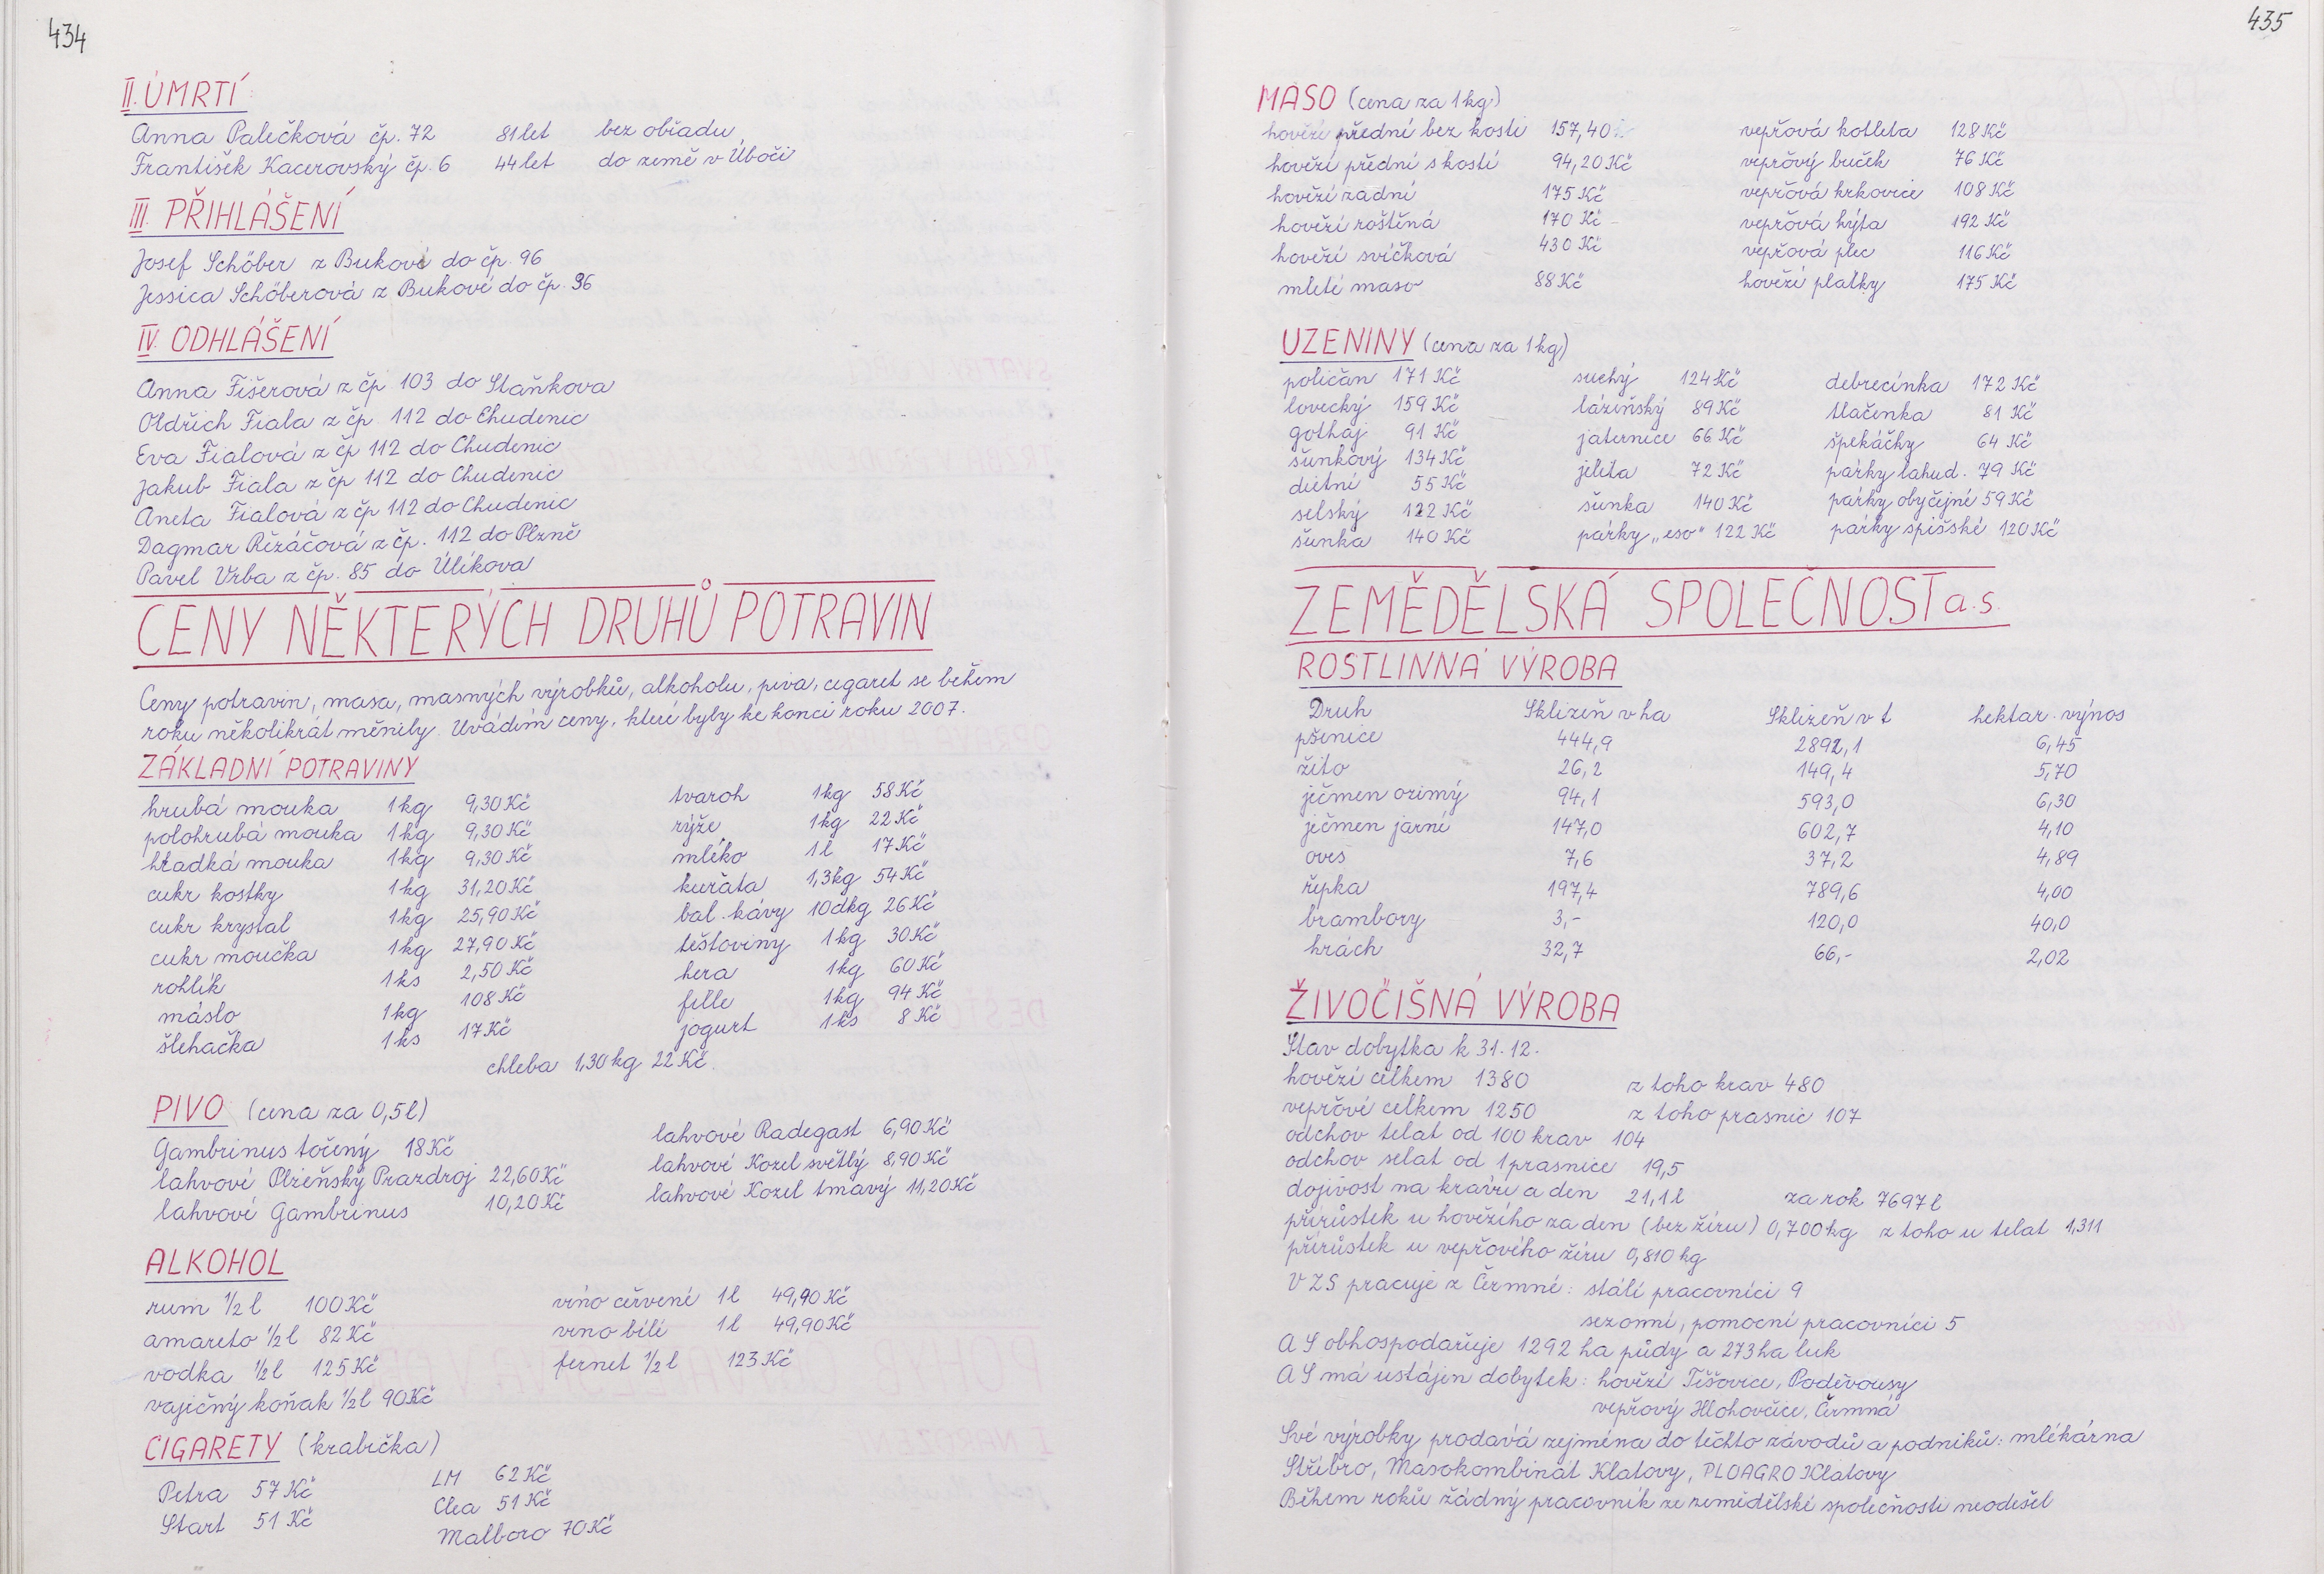 434
II. ÚMRTÍ
Anna Palečková čp. 72 81 let bez obřadu
František Kacerovský čp. 6 44 let do země v Úboči
III. PŘIHLÁŠENÍ
Josef Schöber z Bukové do čp. 96
Jessica Schöberová z Bukové do čp. 96
IV. ODHLÁŠENÍ
Anna Fišerová z čp 103 do Staňkova
Oldřich Fiala z čp. 112 do Chudenic
Eva Fialová z čp 112 do Chudenic
Jakub Fiala z čp 112 do Chudenic
Aneta Fialová z čp 112 do Chudenic
Dagmar Řezáčová z čp. 112 do Plzně
Pavel Vrba z čp. 85 do Úlíkova
CENY NĚKTERÝCH DRUHŮ POTRAVIN
Ceny potravin, masa, masných výrobků, alkoholu, piva, cigaret se během
roku několikrát měnily. Uvádím ceny, které byly ke konci roku 2007.
ZÁKLADNÍ POTRAVINY
hrubá mouka 1kg 9,30 Kč tvaroh 1kg 58 Kč
polohrubá mouka 1kg 9,30 Kč rýže 1kg 22 Kč
hladká mouka 1kg 9,30 Kč mléko 1l 17 Kč
cukr kostky 1kg 31,20 Kč kuřata 1,3kg 54 Kč
cukr krystal 1kg 25,90 Kč bal. kávy 10dkg 26 Kč
cukr moučka 1kg 27,90 Kč těstoviny 1kg 30 Kč
rohlík 1ks 2,50 Kč hera 1kg 60 Kč
máslo 1kg 108 Kč fille 1kg 94 Kč
šlehačka 1ks 17 Kč jogurt 1ks 8 Kč
chleba 1,30 kg 22 Kč.
PIVO (cena za 0,5l)
Gambrinus točený 18 Kč lahvové Radegast 6,90 Kč
lahvové Plzeňský Prazdroj 22,60 Kč lahvové Kozel světlý 8,90 Kč
lahvové Gambrinus 10,20 Kč lahvové Kozel tmavý 11,20 Kč
ALKOHOL
rum 1/2 l 100 Kč víno červené 1l 49,90 Kč
amareto 1/2 l 82 Kč víno bílé 1l 49,90 Kč
vodka 1/2 l 125 Kč fernet 1/2 l 123 Kč
vaječný koňak 1/2 l 90 Kč
CIGARETY (krabička)
Petra 57 Kč LM 62 Kč
Start 51 Kč Clea 51 Kč
Malboro 70 Kč
435
MASO (cena za 1kg)
hovězí přední bez kosti 157,40 vepřová kotleta 128 Kč
hovězí přední s kostí 94,20 Kč vepřový buček 76 Kč
hovězí zadní 175 Kč vepřová krkovice 108 Kč
hovězí roštěná 170 Kč vepřová kýta 192 Kč
hovězí svíčková 430 Kč vepřová plec 116 Kč
mleté maso 88 Kč hovězí plátky 175 Kč
UZENINY (cena za 1kg)
poličan 171 Kč suchý 124 Kč debrecínka 172 Kč
lovecký 159 Kč lázeňský 89 Kč tlačenka 81 Kč
gothaj 91 Kč jaternice 66 Kč špekáčky 64 Kč
šunkový 134 Kč jelita 72 Kč párky lahud. 79 Kč
dietní 55 Kč šunka 140 Kč párky obyčejné 59 Kč
selský 122 Kč párky „eso“ 122 Kč párky spišské 120 Kč
šunka 140 Kč
ZEMĚDĚLSKÁ SPOLEČNOST a.s.
ROSTLINNÁ VÝROBA
Druh Sklizeň v ha Sklizeň v t hektar. výnos
pšenice 444,9 2892,1 6,45
žito 26,2 149,4 5,70
ječmen ozimý 94,1 593,0 6,30
ječmen jarní 147,0 602,7 4,10
oves 7,6 37,2 4,89
řepka 197,4 789,6 4,00
brambory 3,- 120,0 40,0
hrách 32,7 66,- 2,02
ŽIVOČIŠNÁ VÝROBA
Stav dobytka k 31. 12.
hovězí celkem 1380 z toho krav 480
vepřové celkem 1250 z toho prasnic 107
odchov telat od 100 krav 104
odchov selat od 1 prasnice 19,5
dojivost na krávu a den 21,1 l za rok 7697 l
přírůstek u hovězího za den (bez žíru) 0,700 kg z toho u telat 1,311
přírůstek u vepřového žíru 0,810 kg
V ZS pracuje z Čermné: stálí pracovníci 9
sezonní, pomocní pracovníci 5
AS obhospodařuje 1292 ha půdy a 273 ha luk
AS má ustájen dobytek: hovězí Těšovice, Poděvousy
vepřový Hlohovčice, Čermná
Své výrobky prodává zejména do těchto závodů a podniků: mlékárna
Stříbro, Masokombinát Klatovy, PLOAGRO Klatovy
Během roku žádný pracovník ze zemědělské společnosti neodešel